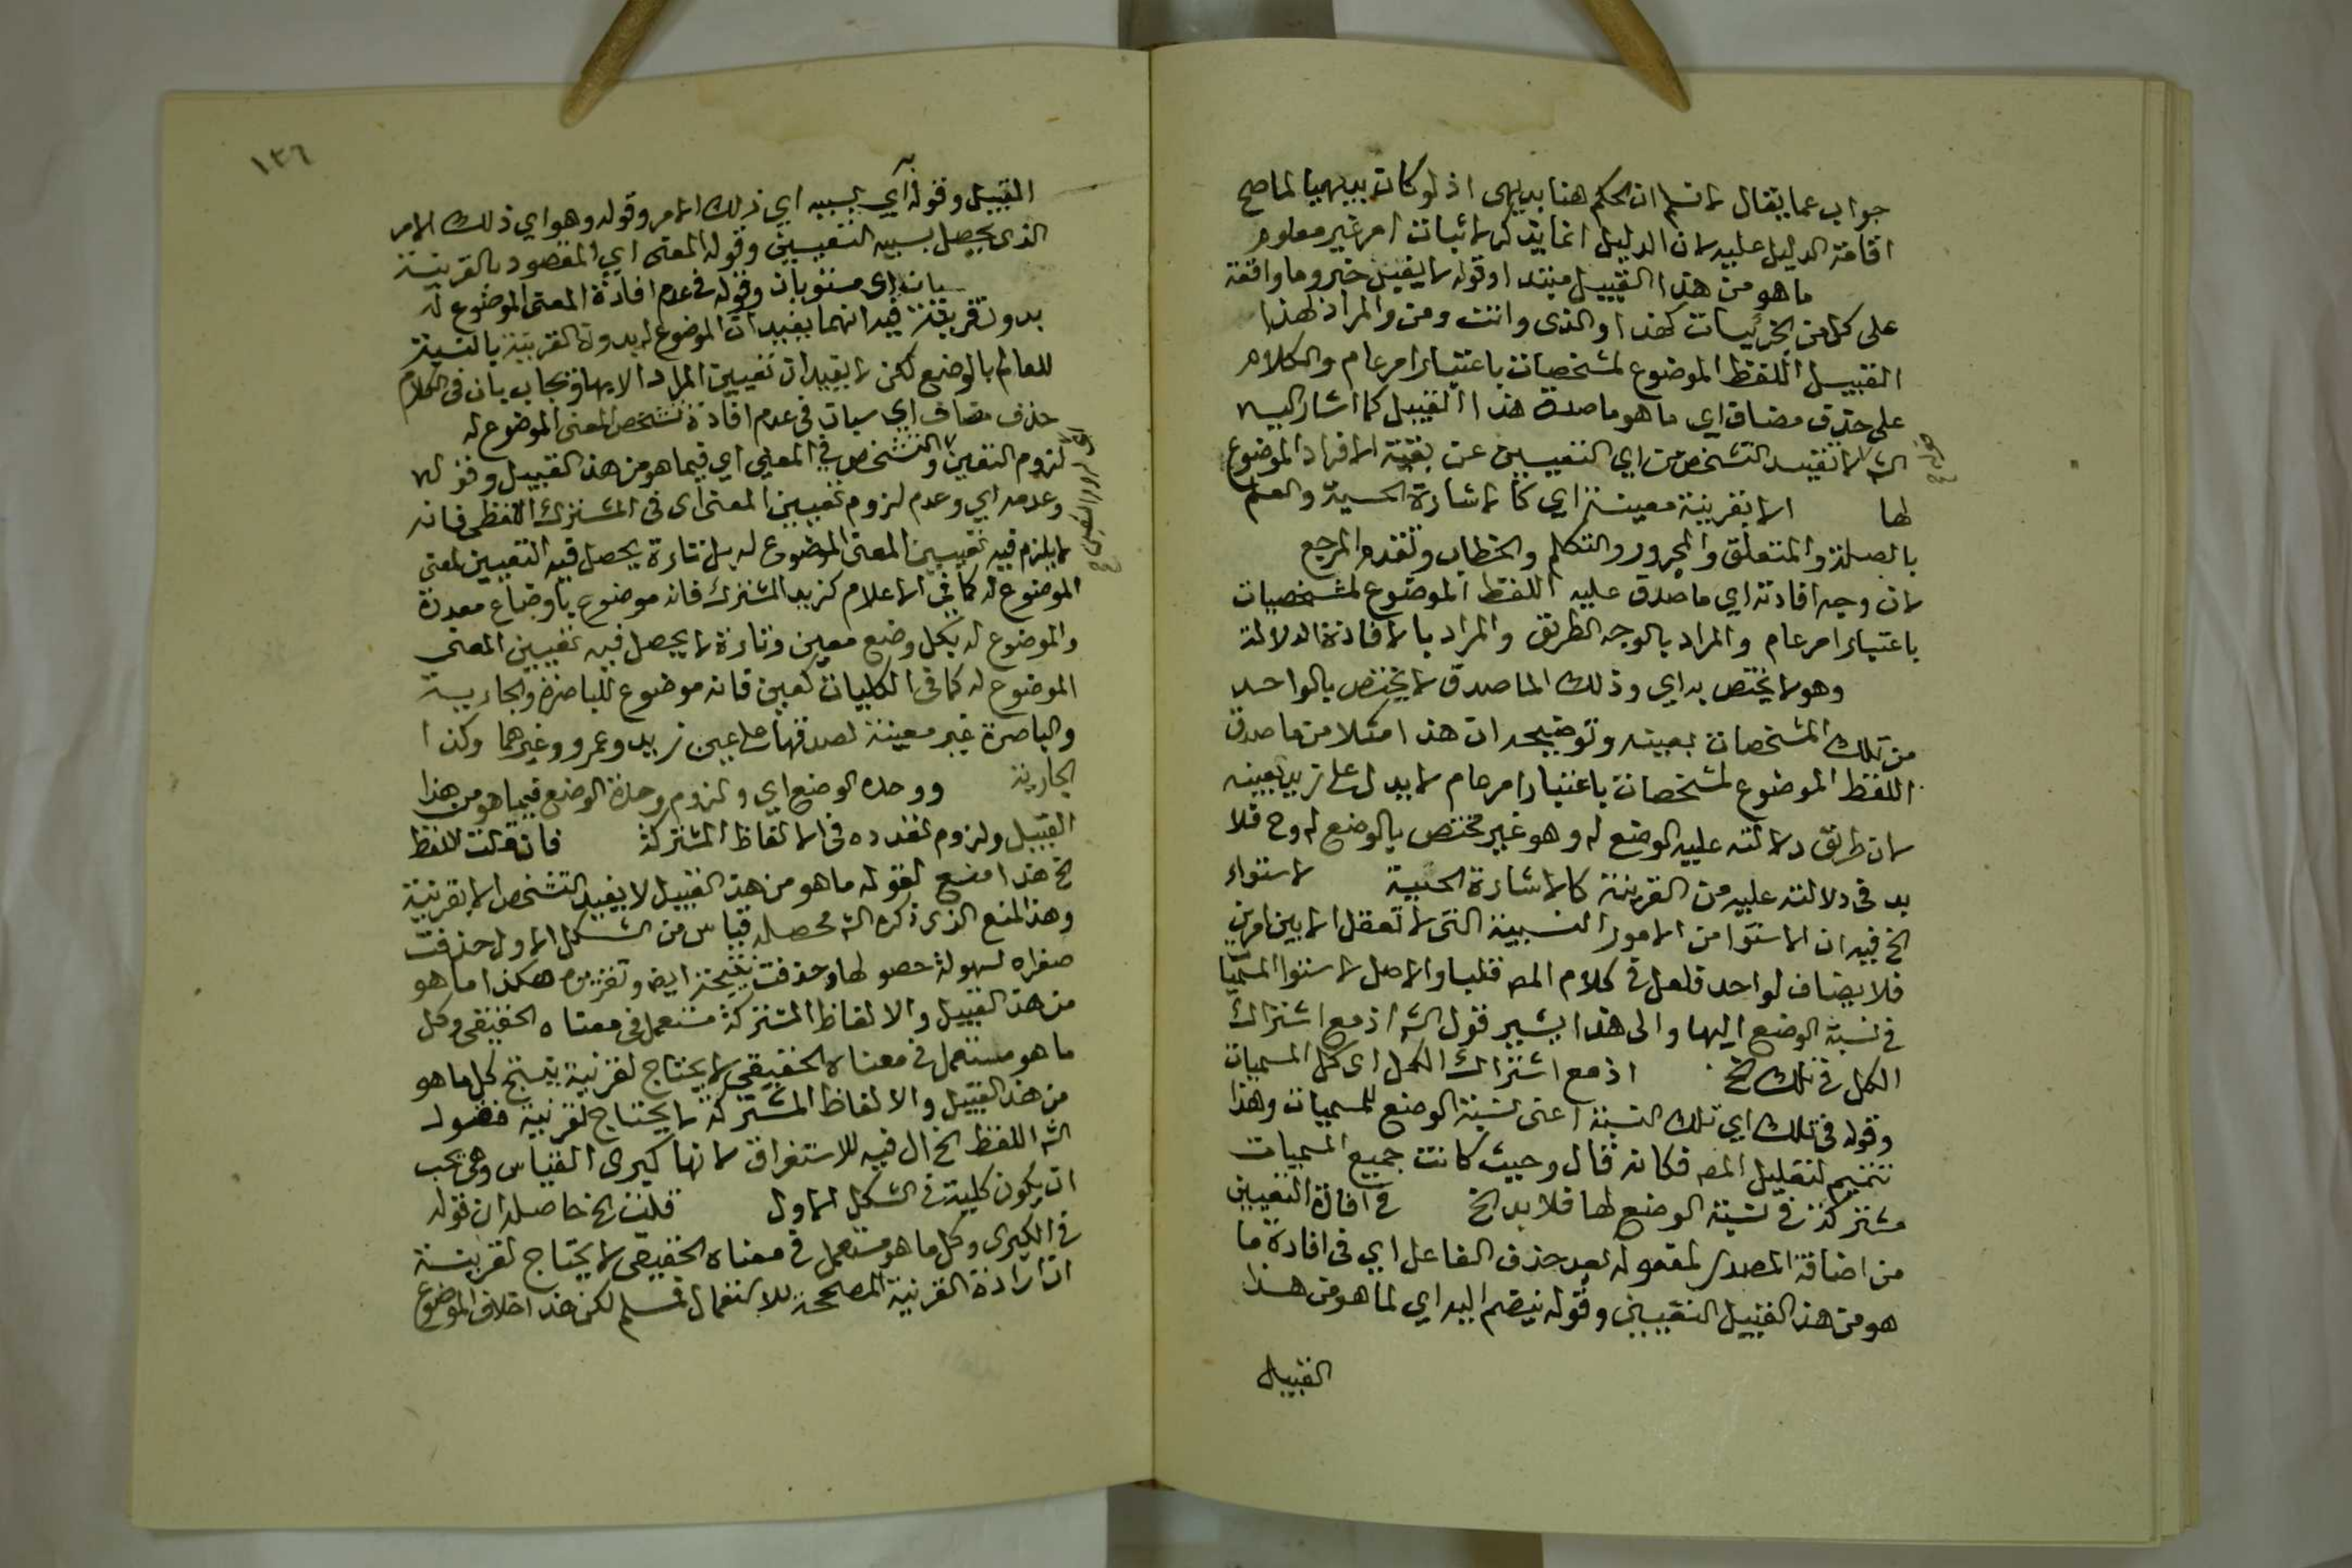 جواب عما يقال لا نسلم ان الحكم هنا بديهى اذ لو كان بديهيا لما صح
اقامة الدليل عليه لان الدليل انما يذكر لاثبات امر غير معلوم
ما هو من هذا القبيل مبتدا وقوله لا يفيد خبر وما واقعة
على كل من الجزئيات كهذا والذى وانت ومن والمراد بهذا
القبيل اللفظ الموضوع لمشخصات باعتبار امر عام والكلام
على حذف مضاف اى ما هو ماصدق هذا القبيل كما اشار اليه
الش لا تفيد التشخص اي التعيين عن بقية الافراد الموضوع
لها الا بقرينة معينة اي كالاشارة الحسية والعلم
بالصلة والمتعلق والمجرور والتكلم والخطاب وتقدم المرجع
لان وجه افادته اي ماصدق عليه اللفظ الموضوع لمشخصات
باعتبار امر عام والمراد بالوجه الطريق والمراد بالافادة الدلالة
وهو لا يختص به اي وذلك الماصدق لا يختص بالواحد
من تلك المشخصات بعينه وتوضيحه ان هذا مثلا من ماصدق
اللفظ الموضوع لمشخصات باعتبار امر عام لا يدل على زيد بعينه
لان طريق دلالته عليه الوضع له وهو غير مختص بالوضع له وح فلا
بد فى دلالته عليه من القرينة كالاشارة الحسية لاستواء
الخ فيه ان الاستوا من الامور النسبية التى لا تعقل الا بين امرين
فلا يضاف لواحد فلعل فى كلام المص قلبا والاصل لاستوا المسميات
فى نسبة الوضع اليها والى هذا يشير قول الش اذ مع اشتراك
الكل فى تلك الخ اذ مع اشتراك الكل اى كل المسميات
وقوله فى تلك اي تلك النسبة اعنى نسبة الوضع للمسميات وهذا
تتميم لتعليل المص فكانه قال وحيث كانت جميع المسميات
مشتركة فى نسبة الوضع لها فلا بد الخ فى افادة التعيين
من اضافة المصدر لمفعوله بعد حذف الفاعل اي فى افادة ما
هو من هذا القبيل التعيين وقوله ينضم اليه اي لما هو من هذا
القبيل
١٣٦
القبيل وقوله به اي بسببه اي ذلك الامر وقوله وهو اي ذلك الامر
الذى يحصل بسببه التعيين وقوله المعنى اي المقصود بالقرينة
سيان اى مستويان وقوله فى عدم افادة المعنى الموضوع له
بدون قرينة فيه انهما يفيدان الموضوع له بدون القرينة بالنسبة
للعالم بالوضع لكن لا يفيدان تعيين المراد الا بها ويجاب بان فى الكلام
حذف مضاف اي سيان فى عدم افادة تشخص المعنى الموضوع له
لزوم التعين والتشخص فى المعنى اي فيما هو من هذا القبيل وقوله
وعدمه اي وعدم لزوم تعيين المعنى اى فى المشترك اللفظى فانه
لا يلزم فيه تعيين المعنى الموضوع له بل تارة يحصل فيه التعيين لمعنى
الموضوع له كما فى الاعلام كزيد المشترك فانه موضوع باوضاع معددة
والموضوع له بكل وضع معين وتارة لا يحصل فيه تعيين المعنى
الموضوع له كما فى الكليات كعين فانه موضوع للباصرة والجارية
والباصرة غير معينة لصدقها على عين زيد وعمرو وغيرهما وكذا
الجارية ووحدة الوضع اي ولزوم وحدة الوضع فيما هو من هذا
القبيل ولزوم تعدده فى الالفاظ المشتركة فان قلت اللفظ
الخ هذا منع لقوله ما هو من هذا القبيل لا يفيد التشخص الا بقرينة
وهذا المنع الذى ذكره الش محصله قياس من الشكل الاول حذفت
صغراه لسهولة حصولها وحذفت نتيجته ايضا وتقريره هكذا ما هو
من هذا القبيل والالفاظ المشتركة مستعمل فى معناه الحقيقى وكل
ما هو مستعمل فى معناه الحقيقى لا يحتاج لقرينة ينتج كل ما هو
من هذا القبيل والالفاظ المشتركة لا يحتاج لقرينة فقول
الش اللفظ الخ ال فيه للاستغراق لانها كبرى القياس وهى يجب
ان يكون كلية فى الشكل الاول قلت الخ حاصله ان قوله
فى الكبرى وكل ما هو مستعمل فى معناه الحقيقى لا يحتاج لقرينة
ان ارادة القرينة المصححة للاستعمال فمسلم لكن هذا خلاف الموضوع